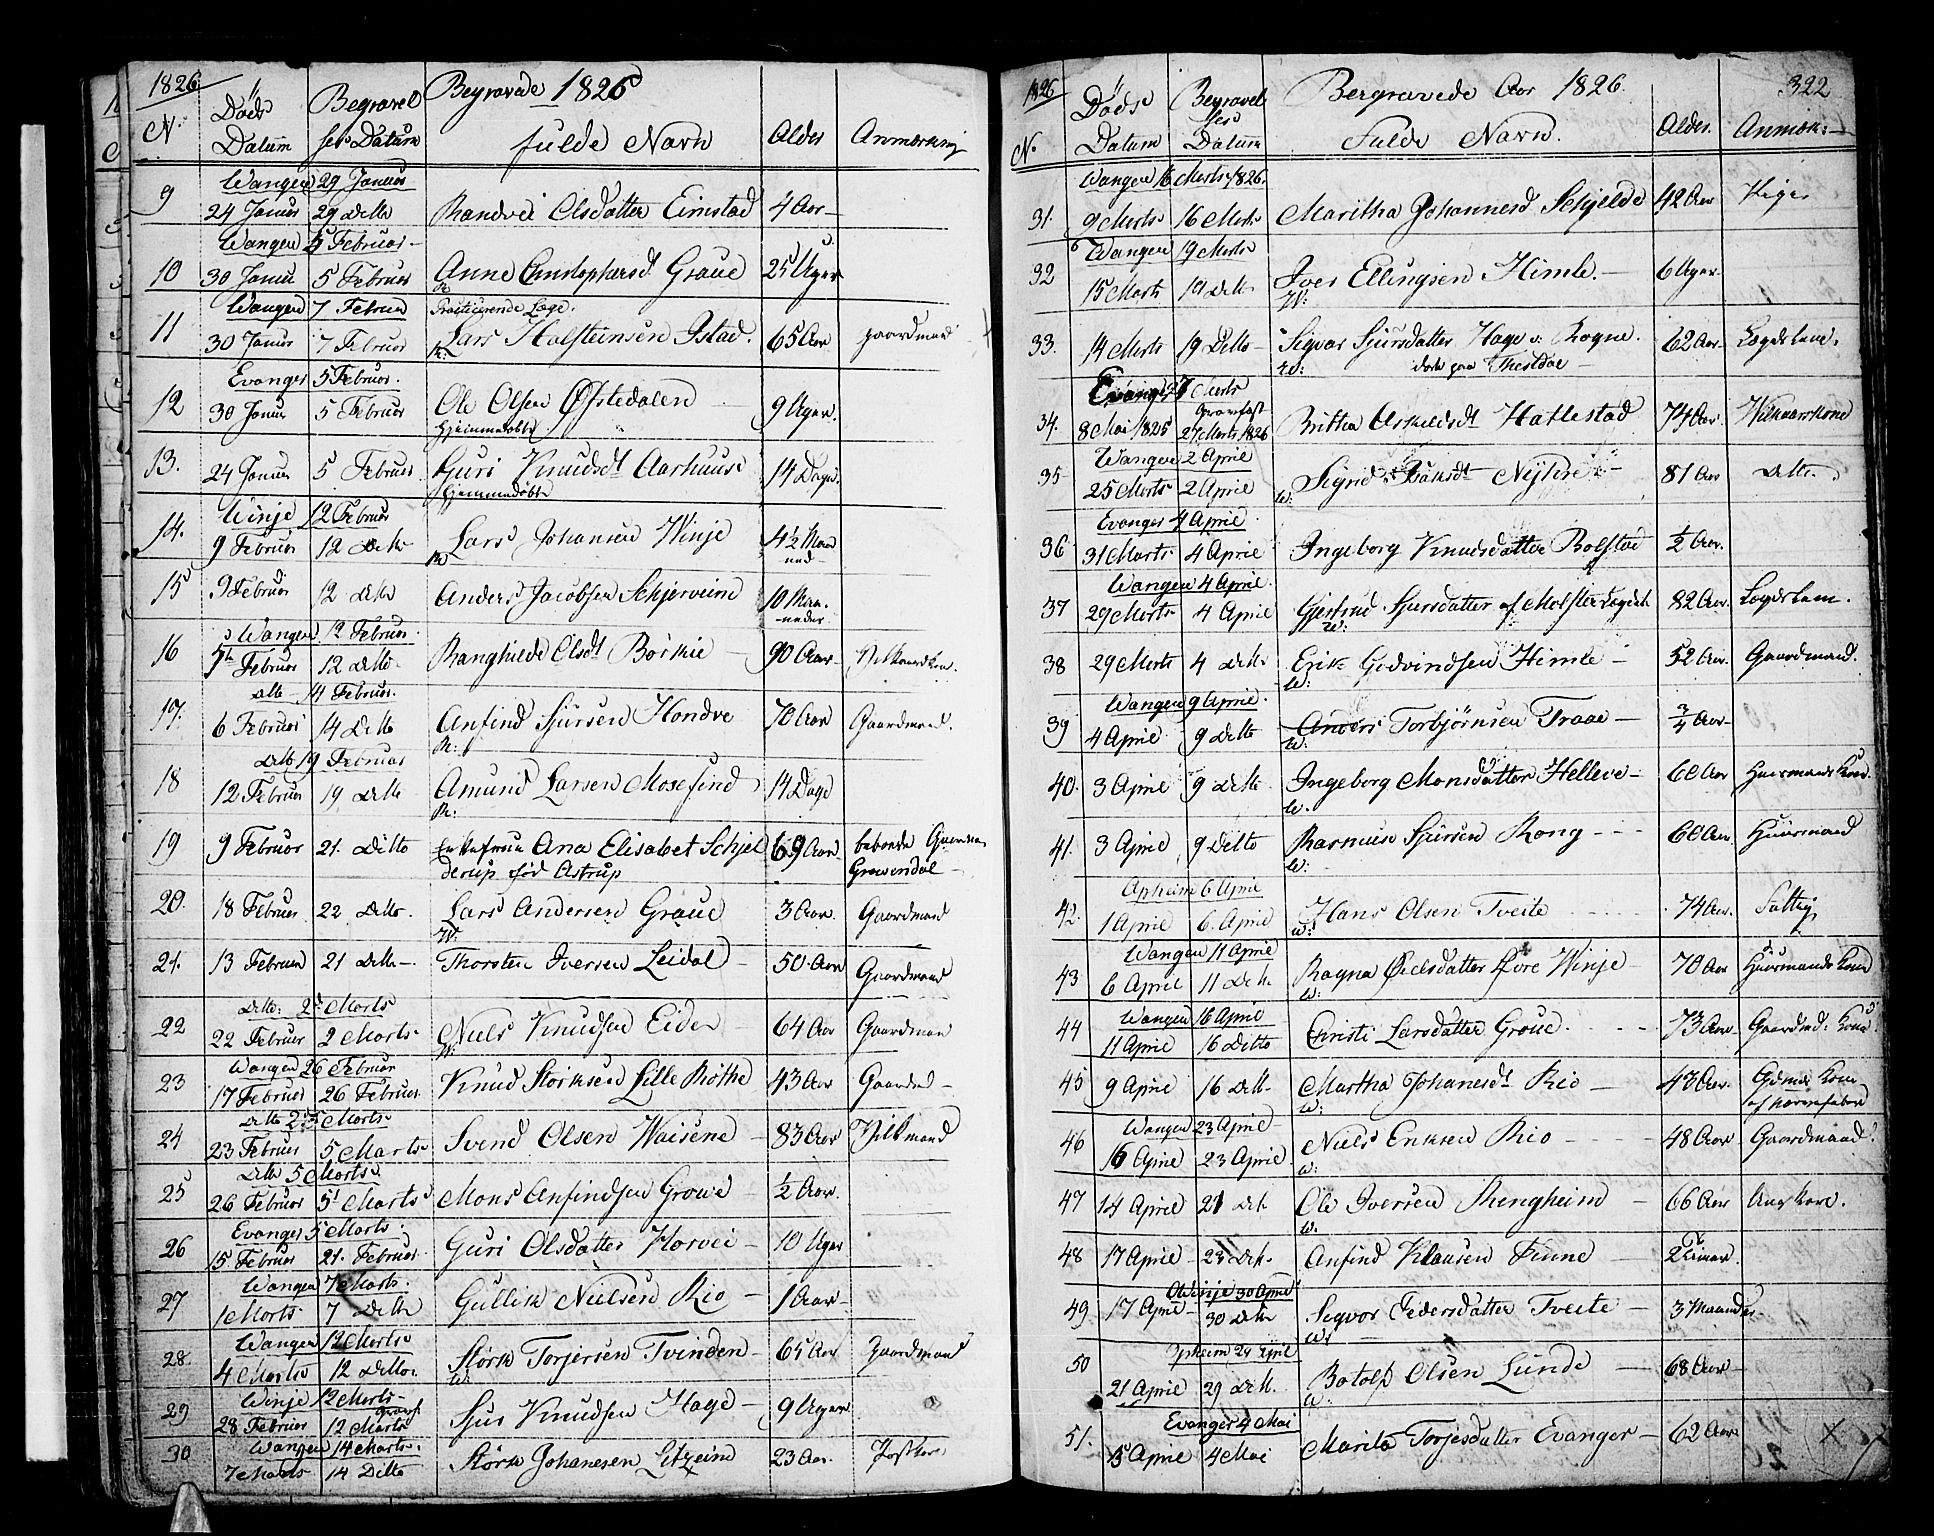 1826
Begravede 1826
N. Döds Datum Begravelses Datum fulde Navn Alder Anmærkning
Wangen 29 Januar
9 24 Januar 29 Ditto Randvei Olsdatter Eimstad 4 Aar
Wangen 5 Februar
10 30 Januar 5 Februar Anne Christophersdt Graue 25 Uger
Wangen 7 Februar Practicerende Læge
11 30 Januar 7 Februar Lars Holsteinsen Istad. 65 Aar gaardmand
Evanger 5 Februar.
12 30 Januar 5 Februar Ole Olsen Østedalen 9 Uger.
Hjemmedøbt
13. 24 Januar 5 Februar Guri Knudsdt Aarhuus 14 Dage.
hjemmedøbt
Winje 12 Februar
14. 9 Februar 12 Ditto Lars Johansen Winje 4½ Maaned
15 9 Februar 12 Ditto Anders Jacobsen Schjerveim 10 Maaneder
Wangen 12 Februar.
16 5 Februar 12 ditto Ranghilde Olsdt Børkie 90 Aar
Ditto 14 Februar.
17. 6 Februar 14 Ditto Anfind Sjursen Hondve 70 Aar Gaardmand.
R:
Ditto 19 Februar
18 12 Februar 19 Ditto Amund Larsen Mosefind 14 Dage
R:
19 9 Februar 21. Ditto Enkefrue Ana Elisabet Schjel 69 Aar beboede Gaarden
derup født Astrup Growendal
20. 18 Februar 22 Ditto. Lars Andersen Graue 3 Aar. Gaardmand
W:
21. 13 Februar 21 Ditto Thorsten Iversen Leidal 50 Aar Gaardmand
Ditto: 2 Marts
22 22 Februar 2 Marts Niels Knudsen Eider 64 Aar Gaardman
W:
Wangen 26 Februar
23 17 Februar 26 Februar. Knud Størksen Lille Røthe 43 Aar Gaardmd
Ditto Marts
24 23 Februar 5 Marts Svend Olsen Waisene 83 Aar Vilkmand
Ditto 5 Marts
25 26 Februar 5 Marts Mons Anfindsen Growe ½ Aar.
Evanger 5 Marts.
26 15 Februar 21. Februar. Guri Olsdatter Horvei 10 Uger
Wangen 7 Marts.
27 1 Marts 7 Ditto Gullik Nielsen Rio 1 Aar
Wangen 12 Marts
28. 4 Marts 12 Ditto Størk Torjersen Tvinden 65 Aar Gaardmand
W:
Winje 12 Marts
29 28 Februar 12 Marts Sjur Knudsen Hage 9 Uger
Wangen 14 Marts.
30 7 Marts 14 Ditto Størk Johanesen 23 Aar.
1826 322
Bergravede Aar 1826.
No Döds Datum Begravelses Datum Fulde Navn. Alder. Anmærk:
Wangen 16 Marts 1826.
31. 9 Marts 16 Marts Maritha Johannesd Schjelde 42 Aar Pige
Wangen 19 Marts
32 15 Marts 19 Ditto Iver Ellingsen Himle. 6 Uger
W:
33. 14 Marts 19 Ditto Sigvar Sjursdatter Hage v. Rogne. 62 Aar. Lægdslem.
Evanger 27 Marts
34. 8 Mai 1825 Gravfæst 27 Marts 1826 Britha Askildsdt Hatlestad 74 Aar Vilkaarskone
Wangen 2 April
35 25 Marts 2 April Sigrid 81 Aar Ditto.
W:
Evanger 4 April
36 31 Marts 4 April Ingeborg Knudsdatter Bolstad ½ Aar.
Wangen 4 April.
37 29 Marts 4 April Gjertrud Sjursdatter af Mølster 82 Aar. Lægdslem.
W:
38 29 Marts 4 Ditto Erik Godvindsen Himle 52 Aar. Gaardmand.
W:
Wangen 9 April.
39 4 April 9 Ditto Anders Torbjørnsen Traae ¾ Aar
W.
40. 3 April 9 Ditto Ingeborg Monsdatter Helleve 60 Aar Huusmands Kone.
W.
41. 3 April 9 Ditto Rasmus Sjursen Rong 60 Aar Huusmand
W:
Opheim 6 April
42. 1 April 6. April Hans Olsen Tveite 74 Aar. Fattig
W:
Wangen 11 April
43 6 April 11 Ditto Ragna Øvre Winje 70 Aar Huusmands Kone
W:
Wangen 16 April
44 11 April 16 Ditto Christi Larsdatter Groue. 73 Aar Gaardmd: Kone
45 9 April 16 Ditto Martha Johanesdt Rio 43 Aar.
W:
Wangen 23 April
46 16 April 23 April Niels Eriksen Rio 48 Aar Gaardmand
W:
47 14 April 21 Dito Ole Iversen Rengheim 66 Aar
W.
48 17 April 23 Dito Anfind Klausen Finne
Winje 30 April
49. 17 April 30 Ditto Segvor Pedersdatter Tveite 3 Maaneder
W:
Opheim 29 April
50 21 April 29 Ditto. Botolf Olsen Lunde 68 Aar
W:
Evanger 4 Mai
51. 15 April 4 Mai Marita Torjesdatter Evanger 62 Aar X